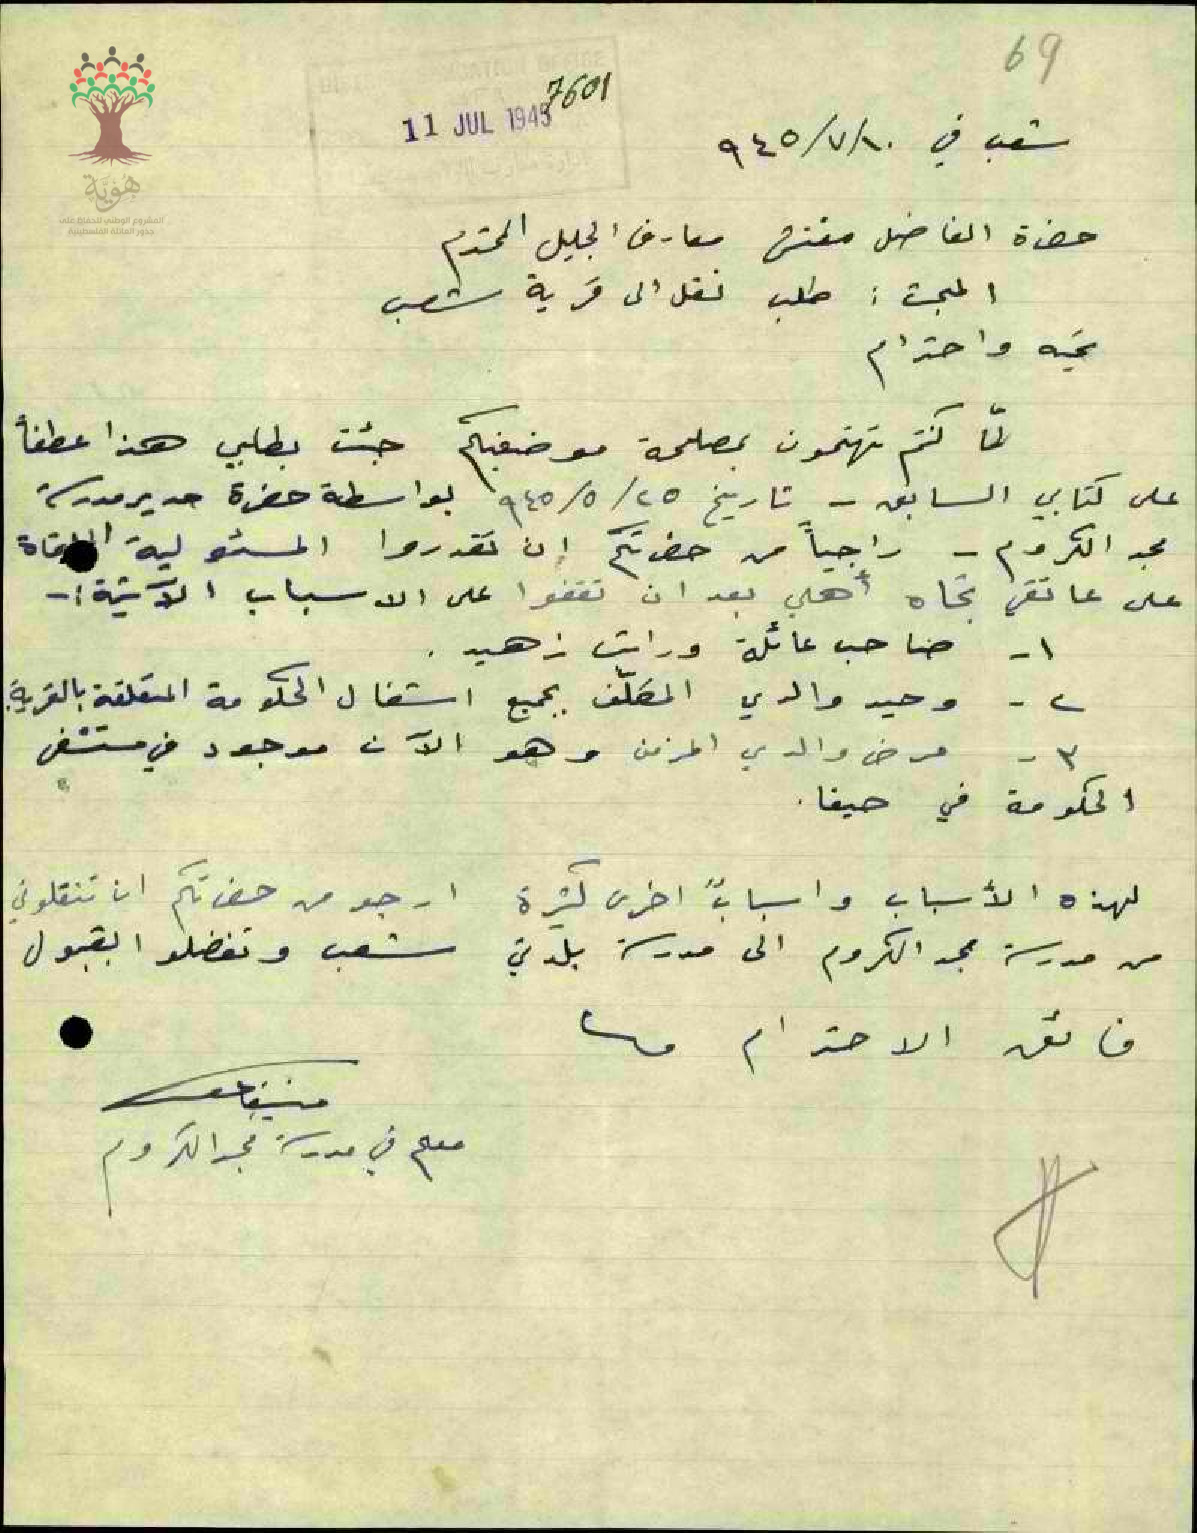 69
DISTRICT EDUCATION OFFICE
7601
11 JUL 1945
هوية
المشروع الوطني للحفاظ على
جذور العائلة الفلسطينية
شعب في ١٠/٧/٩٤٥
حضرة الفاضل مفتش معارف الجليل المحترم
المبحث : طلب نقل الى قرية شعب
تحيه واحترام
لمّا كنتم تهتمون بمصلحة موضفيكم جئت بطلبي هذا عطفاً
على كتابي السابق - تاريخ ٢٥/٥/٩٤٥ بواسطة حضرة مدير مدرسة
مجد الكروم - راجياً من حضرتكم ان تقدروا المسئولية الملقاة
على عاتقي تجاه أهلي بعد ان تقفوا على الاسباب الآتية :-
١- صاحب عائلة وراتب زهيد .
٢- وحيد والدي المكلّف بجميع اشغال الحكومة المتعلقة بالقرية.
٣- مرض والدي المزمن وهو الآن موجود في مستشفى
الحكومة في حيفا.
لهذه الأسباب واسبابً اخرى كثيرة ارجو من حضرتكم ان تنقلوني
من مدرسة مجد الكروم الى مدرسة بلدتي شعب وتفضلوا بقبول
فائق الاحترام
معلم في مدرسة مجد الكروم